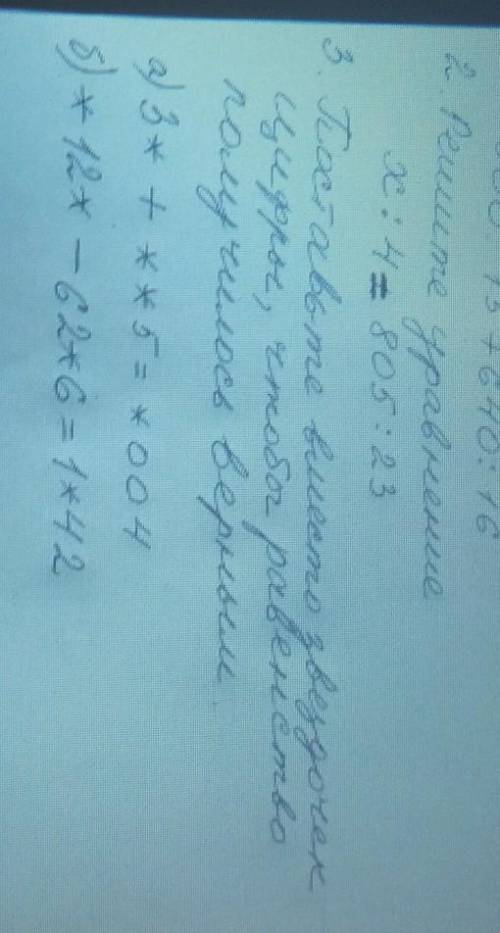 + 640 : 16
2. Решите уравнение
x : 4 = 805 : 23
3. Поставьте вместо звездочек
цифры, чтобы равенство
получилось верным.
а) 3* + **5 = *004
б) *12* - 62*6 = 1*42